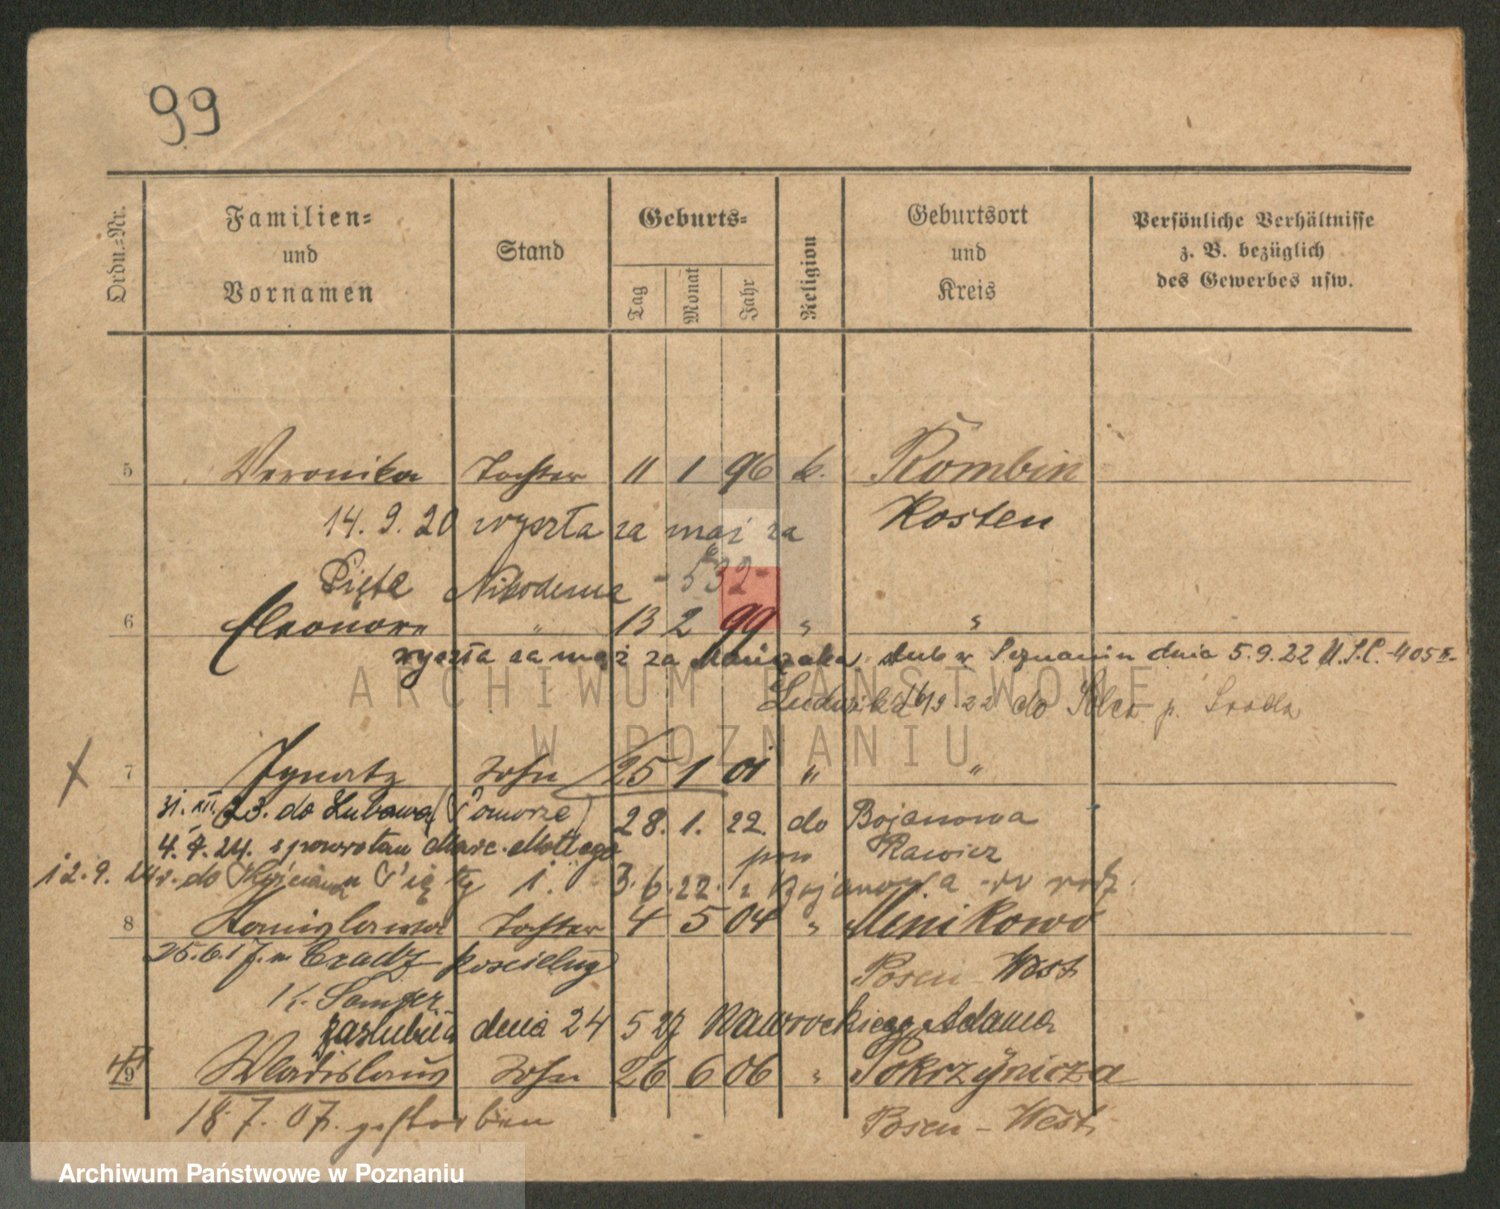 99
Ordn.-Nr.
Familien-
und
Vornamen
Stand
Geburts-
Tag
Monat
Jahr
Religion
Geburtsort
und
Kreis
Persönliche Verhältnisse
z. B. bezüglich
des Gewerbes usw.
5 Veronika Tochter 11 1 96 k. Rombin
14. 9. 20 wyszła za mąż za Kosten
Nikodema - 532 -
6 Eleonore " 13 2 99 " "
wyszła za mąż za ślub w Poznaniu dnia 5.9.22 U.S.C. 405
Ludwika 22 do p. Środa
7 Ignatz Sohn 25 1 01 " "
31. XII. 23. do Lubawa (Pomorze) 28. 1. 22. do Bojanowa
4. 24. z powrotem Marc. Mottego pow Rawicz
12. 9. 24 r. do 3. 6. 22. z Bojanowa
8 Stanislawa Tochter 4 5 04 " Minikowo
25. 6. 17. n. kościelny Posen - West
K. Samter
zaślubiła dnia 24 5 27 Nawrockiego Adama
9 Wladislaus Sohn 26 6 06 " Pokrzywnica
18. 7. 07. gestorben Posen - West
ARCHIWUM PAŃSTWOWE
W POZNANIU
Archiwum Państwowe w Poznaniu